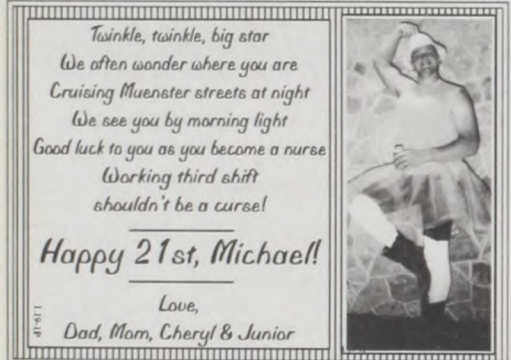 Twinkle, twinkle, big star
We often wonder where you are
Cruising Muenster streets at night
We see you by morning light
Good luck to you as you become a nurse
Working third shift
shouldn't be a curse!
Happy 21st, Michael!
Love,
Dad, Mom, Cheryl & Junior
1.19-1P